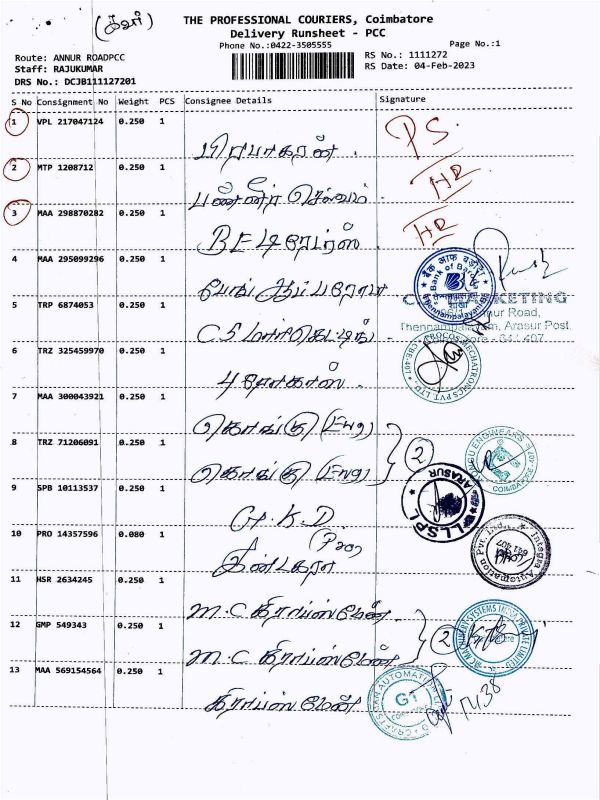 (கவர்)
THE PROFESSIONAL COURIERS, Coimbatore
Delivery Runsheet - PCC
Phone No.:0422-3505555
Page No.:1
Route: ANNUR ROADPCC
Staff: RAJUKUMAR
DRS No.: DCJB111127201
RS No.: 1111272
RS Date: 04-Feb-2023
S No Consignment No Weight PCS Consignee Details Signature
1 VPL 217047124 0.250 1
பிரபாகரன் P.S.
2 MTP 1208712 0.250 1
பன்னீர் செல்வம் HR
3 MAA 298870282 0.250 1
HR
4 MAA 295099296 0.250 1
பேங்க் ஆப் பரோடா
बैंक ऑफ़ बड़ौदा
Bank of Baroda
5 TRP 6874053 0.250 1
C.S மார்கெட்டிங்
MARKETING
Road,
Thennampalayam, Arasur Post,
641 407
6 TRZ 325459970 0.250 1
புரோகாஸ்
PROCOS MECHATRONICS PVT. LTD.
7 MAA 300043921 0.250 1
கொங்கு (Eng)
8 TRZ 71206091 0.250 1
கொங்கு (Eng) 2
9 SPB 10113537 0.250 1
G.K.D
LLSPL ARASUR
10 PRO 14357596 0.080 1
Integra Automation Pvt. Ltd.,
11 HSR 2634245 0.250 1
M.C கிராப்ஸ்மேன்
12 GMP 549343 0.250 1
M.C கிராப்ஸ்மேன் 2
13 MAA 569154564 0.250 1
கிராப்ஸ்மேன்
CRAFTSMAN AUTOMATION
G1